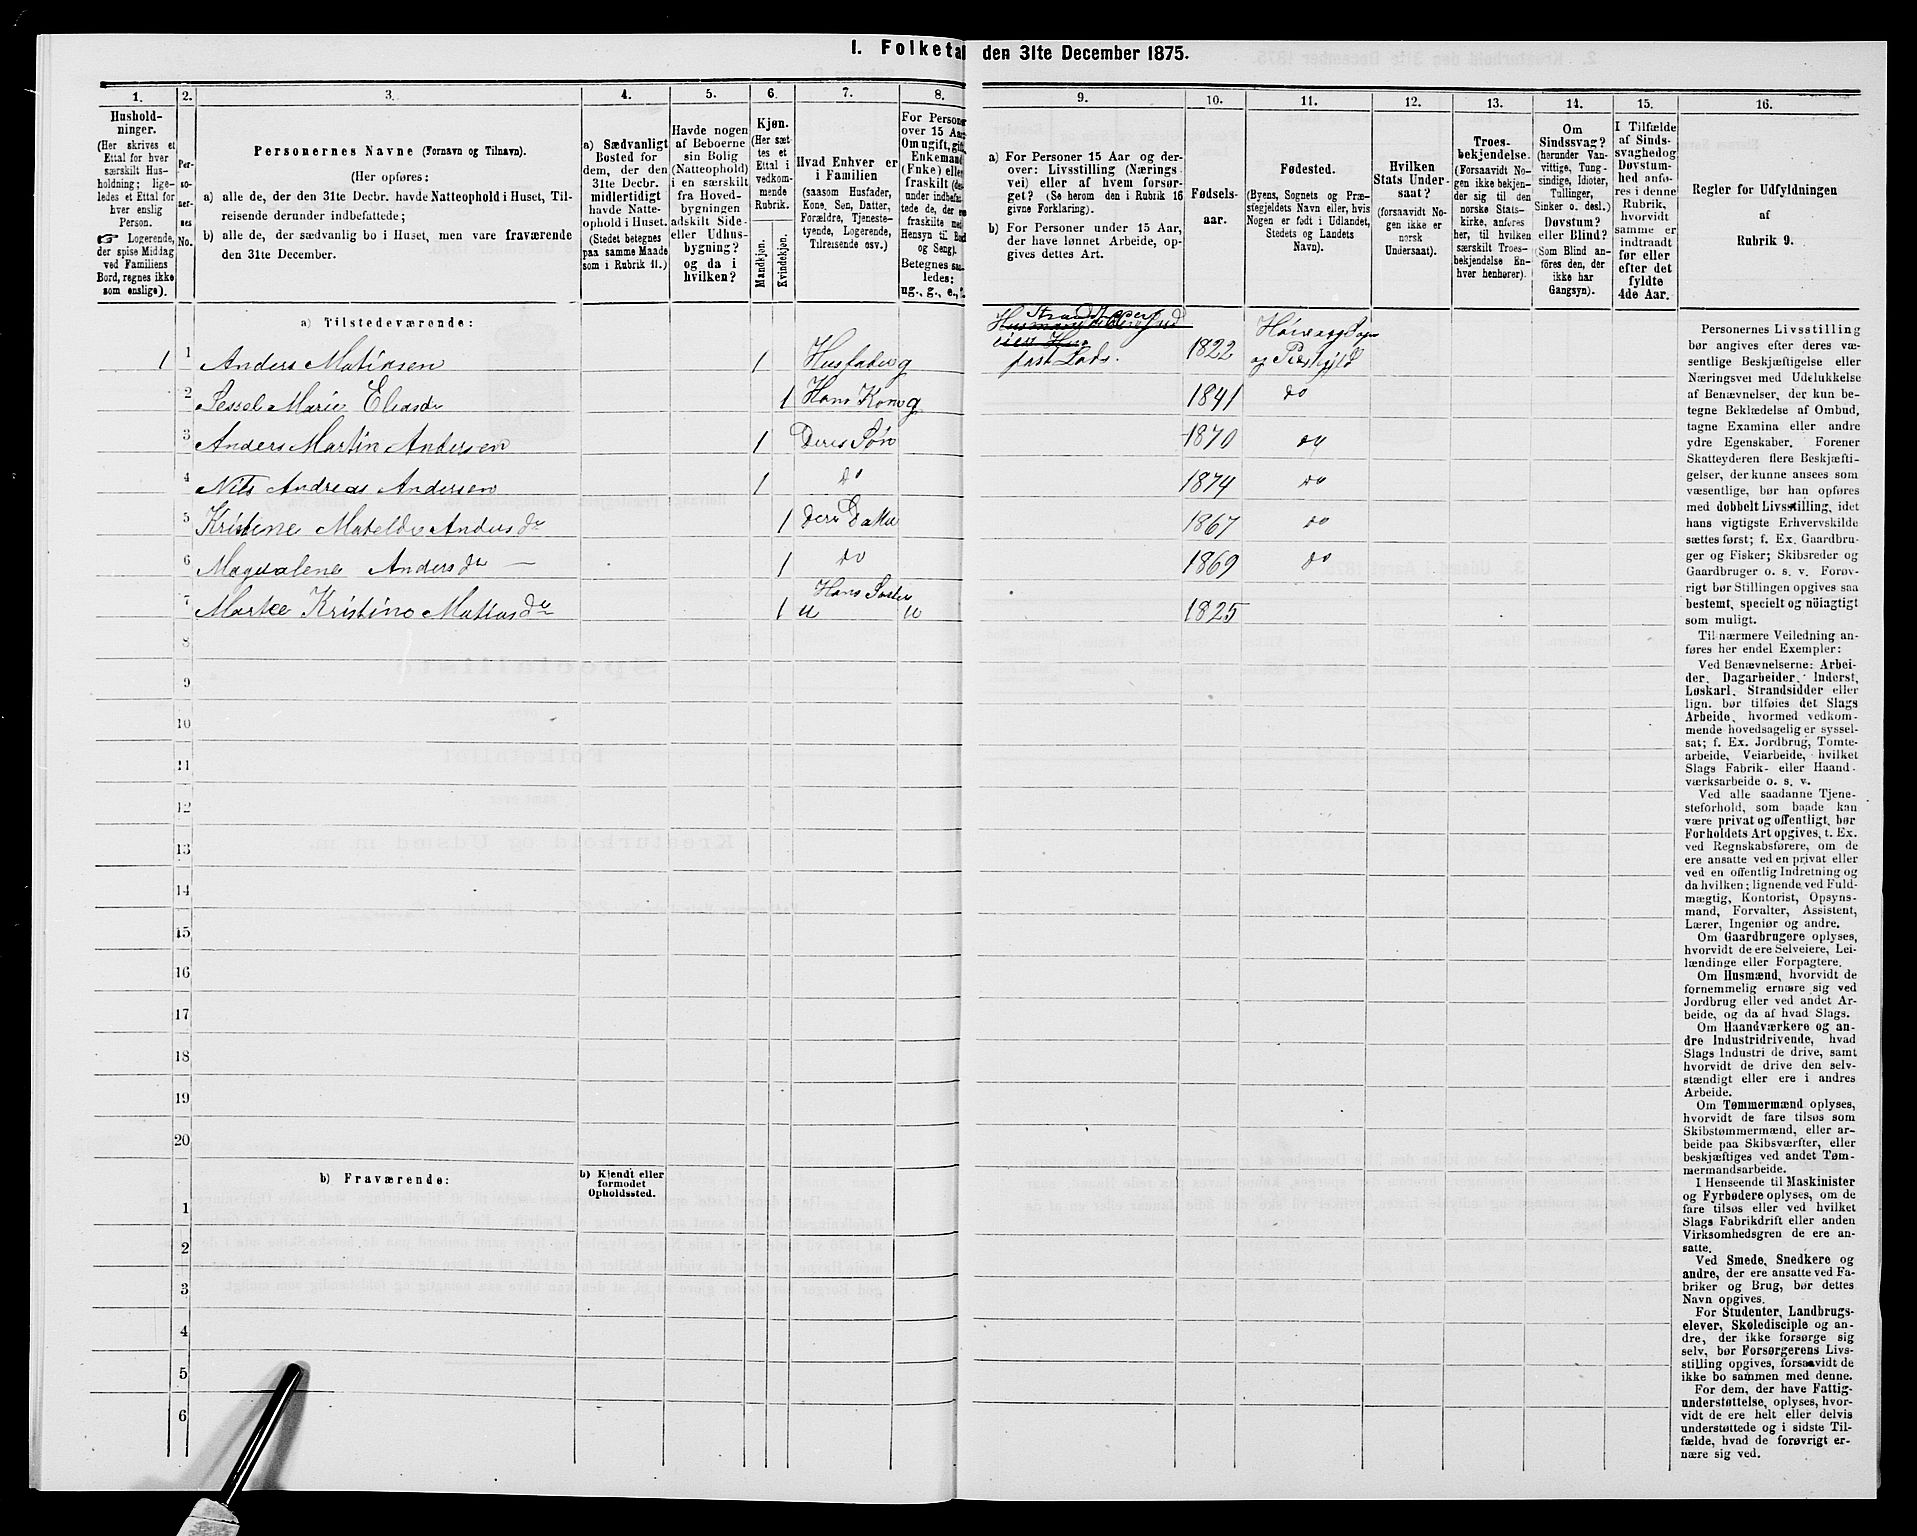 I. Folketal den 31te December 1875.
1.
2.
3.
4.
5.
6.
7.
8.
Hushold-
ninger.
(Her skrives et
Ettal for hver
særskilt Hus-
holdning; lige-
ledes et Ettal for
hver enslig
Person.
☞ Logerende,
der spise Middag
ved Familiens
Bord, regnes ikke
som enslige).
Per-
so-
ner-
nes
No.
Personernes Navne (Fornavn og Tilnavn).
(Her opføres:
a) alle de, der den 31te Decbr. havde Natteophold i Huset, Til-
reisende derunder indbefattede;
b) alle de, der sædvanlig bo i Huset, men vare fraværende
den 31te December.
a) Sædvanligt
Bosted for
dem, der den
31te Decbr.
midlertidigt
havde Natte-
ophold i Huset.
(Stedet betegnes
paa samme Maade
som i Rubrik 11.)
Havde nogen
af Beboerne
sin Bolig
(Natteophold)
i en særskilt
fra Hoved-
bygningen
adskilt Side-
eller Udhus-
bygning?
og da i
hvilken?
Kjøn.
(Her sæt-
tes et
Ettal i
vedkom-
mende
Rubrik.
Mandkjøn.
Kvindekjøn.
Hvad Enhver er
i Familien
(saasom Husfader,
Kone, Søn, Datter,
Forældre, Tjeneste-
tyende, Logerende,
Tilreisende osv.)
For Personer
over 15 Aar:
Om ugift, gift,
Enkemand
(Enke) eller
fraskilt (de
under indbefat-
tede de, der ere
fraskilte med
Hensyn til Bord
og Seng).
Betegnes saa-
ledes:
ug., g., e., f.
a) Tilstedeværende:
1 1 Anders Matiasen 1 Husfader g
2 Sessel Marie Eliasdr 1 Hans Kone g
3 Anders Martin Andersen 1 Deres Søn
4 Nils Andreas Andersen 1 do
5 Kristene Matelde Andersdr 1 Deres Datter
6 Magdalene Andersdr — 1 do
7 Marte Kristine Matiasdr 1 Hans Søster u u
8
9
10
11
12
13
14
15
16
17
18
19
20
b) Fraværende:
b) Kjendt eller
formodet
Opholdssted.
1
2
3
4
5
6
9.
10.
11.
12.
13.
14.
15.
16.
a) For Personer 15 Aar og der-
over: Livsstilling (Nærings-
vei) eller af hvem forsør-
get? (Se herom den i Rubrik 16
givne Forklaring).
b) For Personer under 15 Aar,
der have lønnet Arbeide, op-
gives dettes Art.
Fødsels-
aar.
Fødested.
(Byens, Sognets og Præ-
stegjeldets Navn eller, hvis
Nogen er født i Udlandet,
Stedets og Landets
Navn).
Hvilken
Stats Under-
saat?
(forsaavidt No-
gen ikke er
norsk
Undersaat).
Troes-
bekjendelse.
(Forsaavidt No-
gen ikke bekjen-
der sig til den
norske Stats-
kirke, anføres
her, til hvilken
særskilt Troes-
bekjendelse En-
hver henhører).
Om
Sindssvag?
(herunder Van-
vittige, Tung-
sindige, Idioter,
Tullinger,
Sinker o. desl.)
Døvstum?
eller Blind?
(Som Blind an-
føres den, der
ikke har
Gangsyn).
I Tilfælde
af Sinds-
svaghed og
Døvstum-
hed anfø-
res i denne
Rubrik,
hvorvidt
samme er
indtraadt
før eller
efter det
fyldte
4de Aar.
Regler for Udfyldningen
af
Rubrik 9.
fast Lods. 1822 og Præstgjeld
1841 do
1870 do
1874 do
1867 do
1869 do
1825
Personernes Livsstilling
bør angives efter deres væ-
sentlige Beskjæftigelse eller
Næringsvei med Udelukkelse
af Benævnelser, der kun be-
tegne Beklædelse af Ombud,
tagne Examina eller andre
ydre Egenskaber. Forener
Skatteyderen flere Beskjæfti-
gelser, der kunne ansees som
væsentlige, bør han opføres
med dobbelt Livsstilling, idet
hans vigtigste Erhvervskilde
sættes først; f. Ex. Gaardbru-
ger og Fisker; Skibsreder og
Gaardbruger o. s. v. Forøv-
rigt bør Stillingen opgives saa
bestemt, specielt og nöiagtigt
som muligt.
Til nærmere Veiledning an-
føres her endel Exempler:
Ved Benævnelserne: Arbei-
der, Dagarbeider, Inderst,
Løskarl, Strandsidder eller
lign. bør tilføies det Slags
Arbeide, hvormed vedkom-
mende hovedsagelig er syssel-
sat; f. Ex. Jordbrug, Tomte-
arbeide, Veiarbeide, hvilket
Slags Fabrik- eller Haand-
værksarbeide o. s. v.
Ved alle saadanne Tjene-
steforhold, som baade kan
være privat og offentligt, bør
Forholdets Art opgives, t. Ex.
ved Regnskabsførere, om de
ere ansatte ved en privat eller
ved en offentlig Indretning og
da hvilken; lignende ved Fuld-
mægtig, Kontorist, Opsyns-
mand, Forvalter, Assistent,
Lærer, Ingeniør og andre.
Om Gaardbrugere oplyses,
hvorvidt de ere Selveiere, Lei-
lændinge eller Forpagtere.
Om Husmænd, hvorvidt de
fornemmelig ernære sig ved
Jordbrug eller ved andet Ar-
beide, og da af hvad Slags.
Om Haandværkere og an-
dre Industridrivende, hvad
Slags Industri de drive, samt
hvorvidt de drive den selv-
stændigt eller ere i andres
Arbeide.
Om Tømmermænd oplyses,
hvorvidt de fare tilsøs som
Skibstømmermænd, eller ar-
beide paa Skibsværfter, eller
beskjæftiges ved andet Tøm-
mermandsarbeide.
I Henseende til Maskinister
og Fyrbødere oplyses, om de
fare tilsøs eller ved hvilket
Slags Fabrikdrift eller anden
Virksomhedsgren de ere an-
satte.
Ved Smede, Snedkere og
andre, der ere ansatte ved Fa-
briker og Brug, bør dettes
Navn opgives.
For Studenter, Landbrugs-
elever, Skoledisciple og an-
dre, der ikke forsørge sig
selv, bør Forsørgerens Livs-
stilling opgives, forsaavidt de
ikke bo sammen med denne.
For dem, der have Fattig-
understøttelse, oplyses, hvor-
vidt de ere helt eller delvis
understøttede og i sidste Til-
fælde, hvad de forøvrigt er-
nære sig ved.